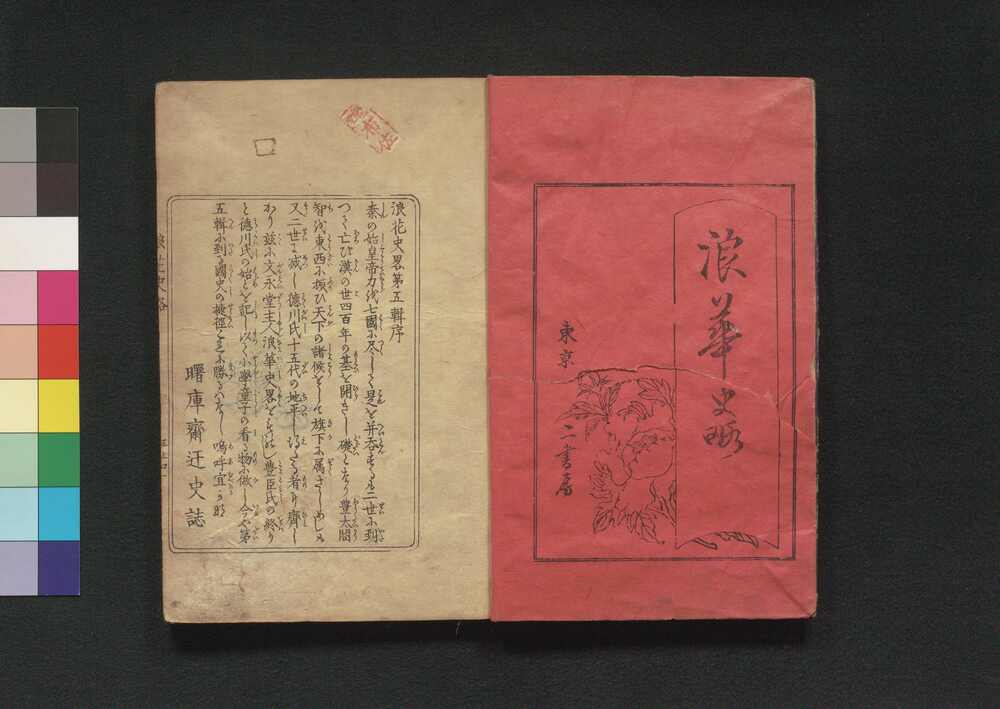 浪華史略
東京 二書房
浪花史畧第五輯序
秦の始皇帝力を七國に尽して是を并呑するも二世に到
つて亡び漢の世四百年の基を開きし礎となり豊太閤
智を東西に振ひ天下の諸候をして旗下に属さしめしも
又二世に滅し徳川氏十五代の地平
かり茲に文永堂主人浪華史畧をものし豊臣氏の終り
と徳川氏の始とを記し以て小学童子の看る物に做し今や第
五輯に到る國史の捷徑是に勝るはなし嗚呼宜
曙庫齋迂史誌